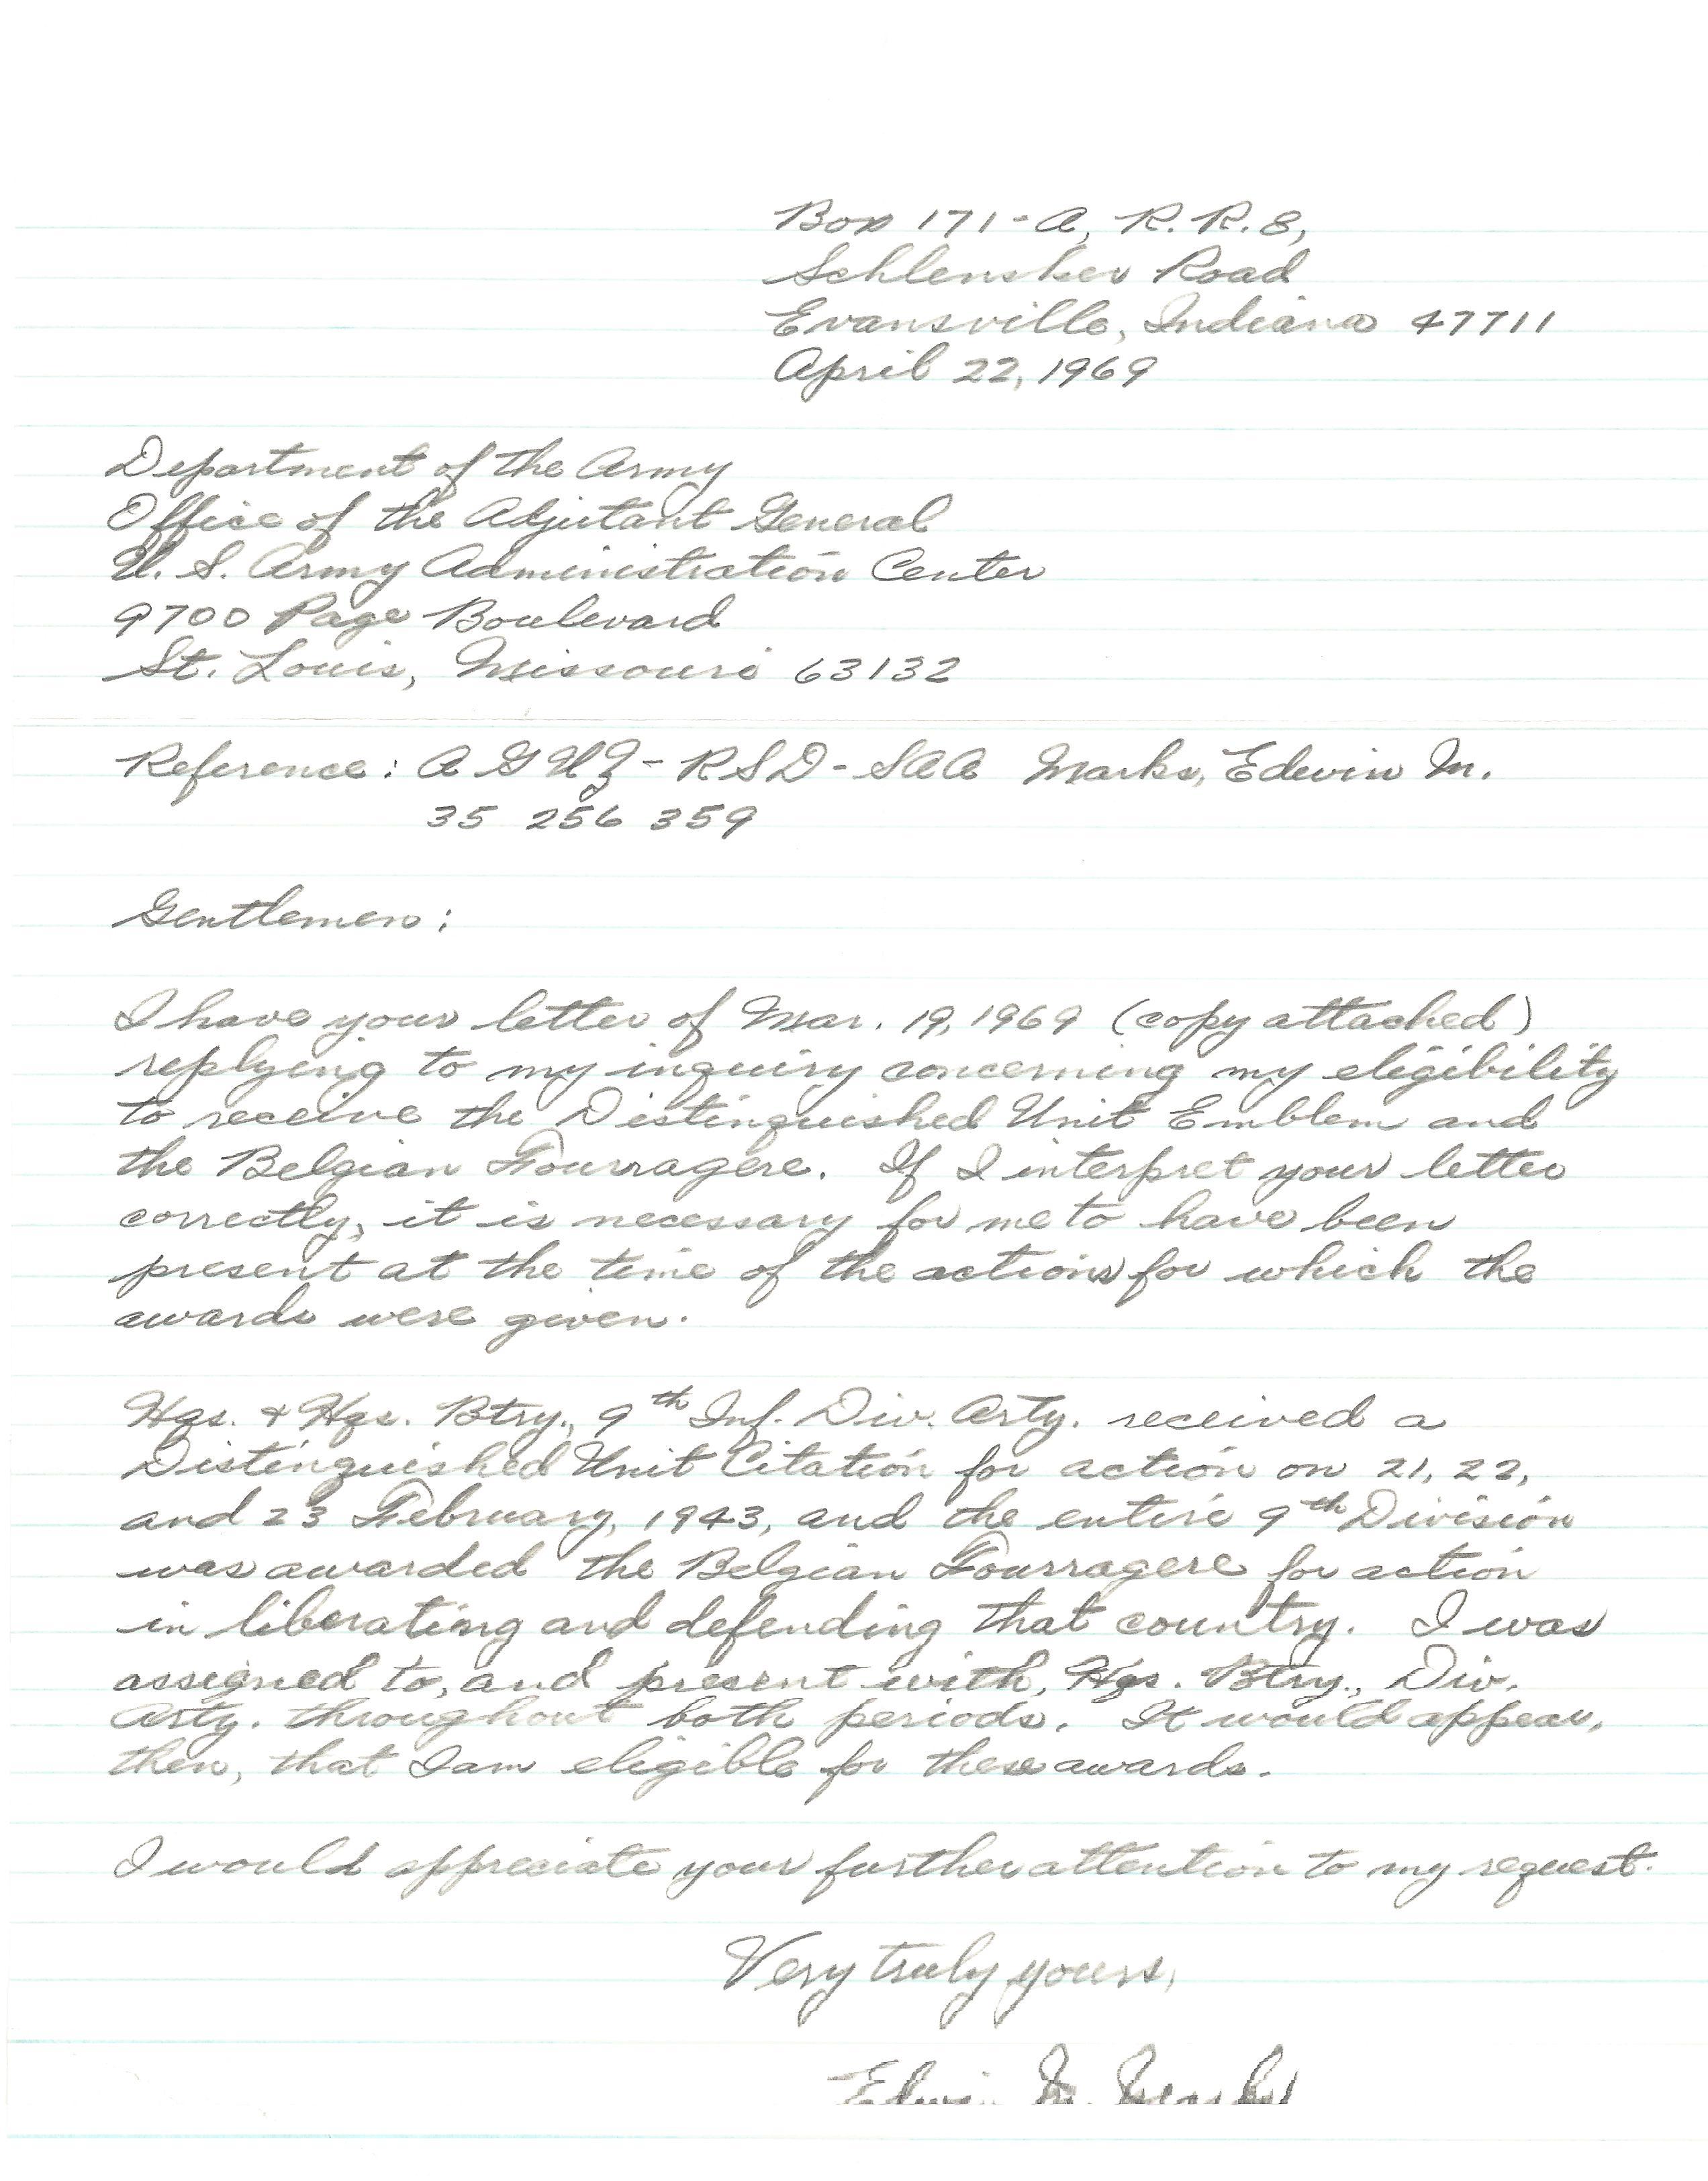 Box 171-A, R.R.8,
Schlensker Road
Evansville, Indiana 47711
April 22, 1969
Department of the Army
Office of the Adjutant General
U. S. Army Administration Center
9700 Page Boulevard
St. Louis, Missouri 63132
Reference: AGUZ-RSD-SAA Marks, Edwin M.
35 256 359
Gentlemen:
I have your letter of Mar. 19, 1969 (copy attached)
replying to my inquiry concerning my eligibility
to receive the Distinguished Unit Emblem and
the Belgian Fourragere. If I interpret your letter
correctly, it is necessary for me to have been
present at the time of the actions for which the
awards were given.
Hqs. & Hqs. Btry., 9th Inf. Div. Arty. received a
Distinguished Unit Citation for action on 21, 22,
and 23 February, 1943, and the entire 9th Division
was awarded the Belgian Fourragere for action
in liberating and defending that country. I was
assigned to, and present with, Hqs. Btry., Div.
Arty. throughout both periods. It would appear,
then, that I am eligible for these awards.
I would appreciate your further attention to my request.
Very truly yours,
Edwin M. Marks